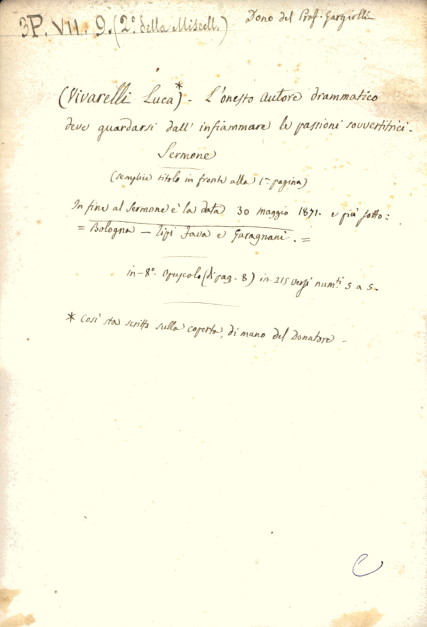 3P. VII. 9. (2º. della Miscell.)
Dono del Prof. Gargiolli
(Vivarelli Luca)* - L'onesto autore drammatico
deve guardarsi dall' infiammare le passioni sovvertitrici.
Sermone
(semplice titolo in fronte alla 1ª pagina)
In fine al Sermone è la data 30 maggio 1871. e più sotto:
= Bologna — Tipi Fava e Garagnani. =
in-8º. Opuscolo (di pag. 8) in 215 versi num.ti 5 a 5.
* Così sta scritto sulla coperta, di mano del Donatore.